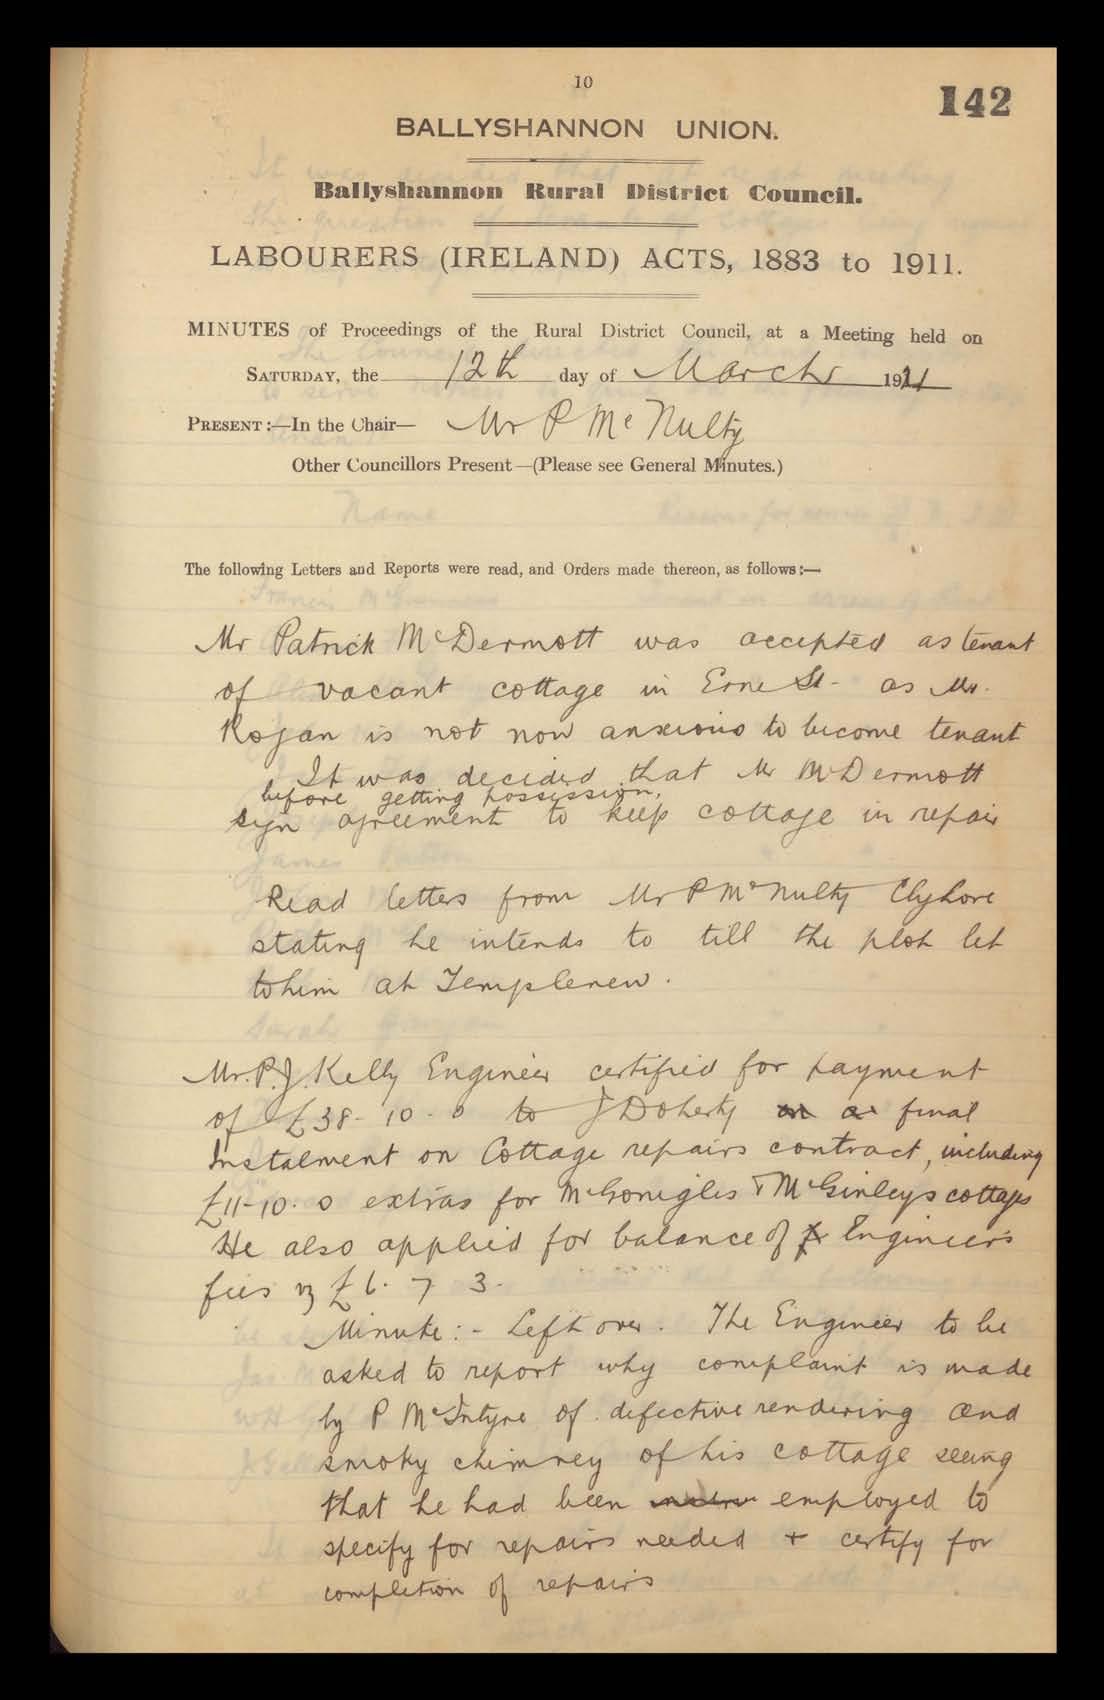 10
142
BALLYSHANNON UNION.
Ballyshannon Rural District Council.
LABOURERS (IRELAND) ACTS, 1883 to 1911.
MINUTES of Proceedings of the Rural District Council, at a Meeting held on
SATURDAY, the 12th day of March 1921
PRESENT :—In the Chair— Mr P McNulty
Other Councillors Present—(Please see General Minutes.)
The following Letters and Reports were read, and Orders made thereon, as follows :—
Mr Patrick McDermott was accepted as tenant
of vacant cottage in Erne St- as Mr.
Rogan is not now anxious to become tenant
It was decided that Mr McDermott
before getting possession,
sign agreement to keep cottage in repair
Read letters from Mr P McNulty Clyhore
stating he intends to till the plot let
to him at Templenew.
Mr. P. J. Kelly Engineer certified for payment
of £38-10-0 to J Doherty on a final
Instalment on Cottage repairs contract, including
£11-10.0 extras for McGonigles & McGinleys cottages
He also applied for balance of Engineer's
fees vz £6. 7 3.
Minute :- Left over. The Engineer to be
asked to report why complaint is made
by P McIntyre of defective rendering and
smoky chimney of his cottage seeing
that he had been employed to
specify for repairs needed + certify for
completion of repairs